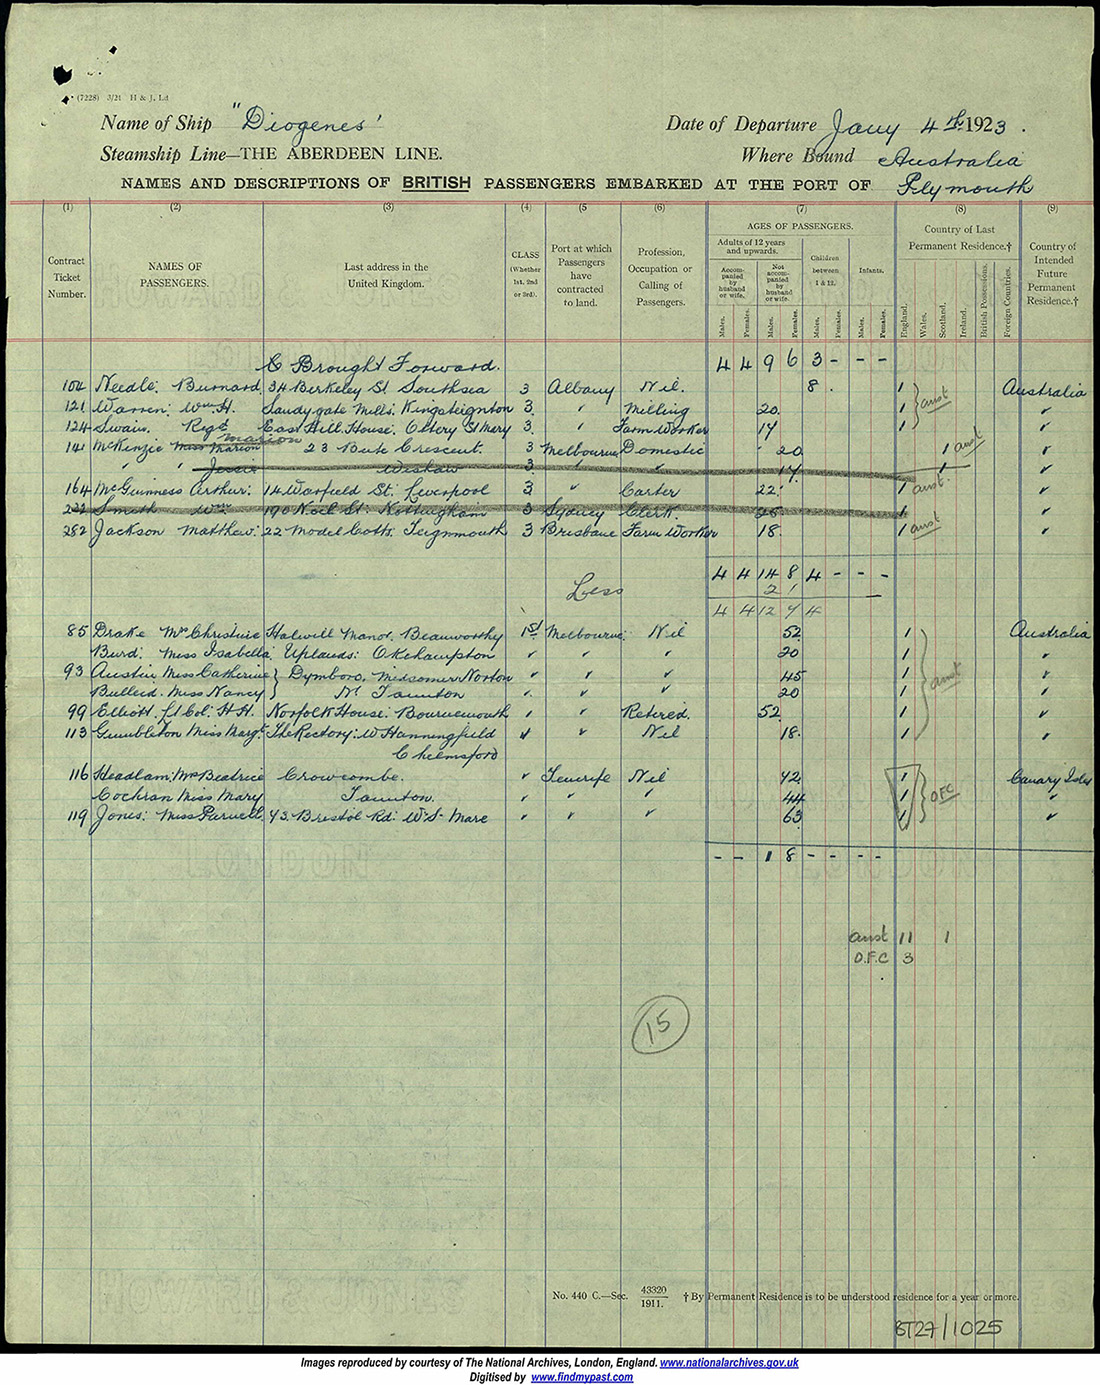 (7228) 3/21 H & J, Ld
Name of Ship "Diogenes" Date of Departure Jany 4th 1923.
Steamship Line—THE ABERDEEN LINE. Where Bound Australia
NAMES AND DESCRIPTIONS OF BRITISH PASSENGERS EMBARKED AT THE PORT OF Plymouth
(1) (2) (3) (4) (5 (6) (7) (8) (9)
Contract Ticket Number. NAMES OF PASSENGERS. Last address in the United Kingdom. CLASS (Whether 1st, 2nd or 3rd). Port at which Passengers have contracted to land. Profession, Occupation or Calling of Passengers. AGES OF PASSENGERS. Country of Last Permanent Residence.† Country of Intended Future Permanent Residence.†
Adults of 12 years and upwards. Children between 1 & 12. Infants.
Accompanied by husband or wife. Not accompanied by husband or wife.
Males. Females. Males. Females. Males. Females. Males. Females. England. Wales. Scotland. Ireland. British Possessions. Foreign Countries.
Brought Forward. 4 4 9 6 3 - - -
104 Needle: Burnard 34 Berkeley St Southsea 3 Albany Nil. 8. 1 Australia
121 Warren: Wm H. Sandygate Mills. Kingsteignton 3. " Milling 20. 1 aust "
124 Swain. Regd East Hill House. Ottery St Mary 3. " Farm Worker 17 1 "
Marion
141 McKinzie Miss Marion 23 Bute Crescent. 3 Melbourne Domestic 20 1 aust "
" " Jessie Wishaw 3 " " 17. 1 "
164 McGuinness Arthur: 14 Warfield St. Liverpool 3 " Carter 22. 1 aust. "
222 Smith Wm 190 Noel St: Nottingham 3 Sydney Clerk 25 1
282 Jackson Matthew: 22 Model Cotts. Teignmouth 3 Brisbane Farm Worker 18. 1 aust "
4 4 14 8 4 - - -
Less 2 1
4 4 12 7 4
85 Drake Mrs Christine Halwill Manor. Beauworthy 1st Melbourne: Nil 52 1 Australia
Burd: Miss Isabella. Uplands: Okehampton " " " 20 1 "
93 Austin Miss Catherine } Dymboro, Midsomer Norton " " " 45 1 aust "
Bulleid. Miss Nancy } Nr Taunton " " " 20 1 "
99 Elliott. Lt Col: H.H. Norfolk House: Bournemouth " " Retired. 52 1 "
113 Gumbleton Miss Margt. The Rectory: W Hanningfield " " Nil 18. 1 "
Chelmsford
116 Headlam: Mrs Beatrice Crowcombe. " Tenerife Nil 42 1 Canary Isles
Cochran Miss Mary Taunton. " " " 44 1 O.F.C "
119 Jones: Miss 43. Bristol Rd: W-S-Mare " " " 63 1 "
- - 1 8 - - - -
aust 11 1
O.F.C 3
15
No. 440 C.—Sec. 43320 1911. † By Permanent Residence is to be understood residence for a year or more.
BT27/1025
Images reproduced by courtesy of The National Archives, London, England. www.nationalarchives.gov.uk
Digitised by www.findmypast.com